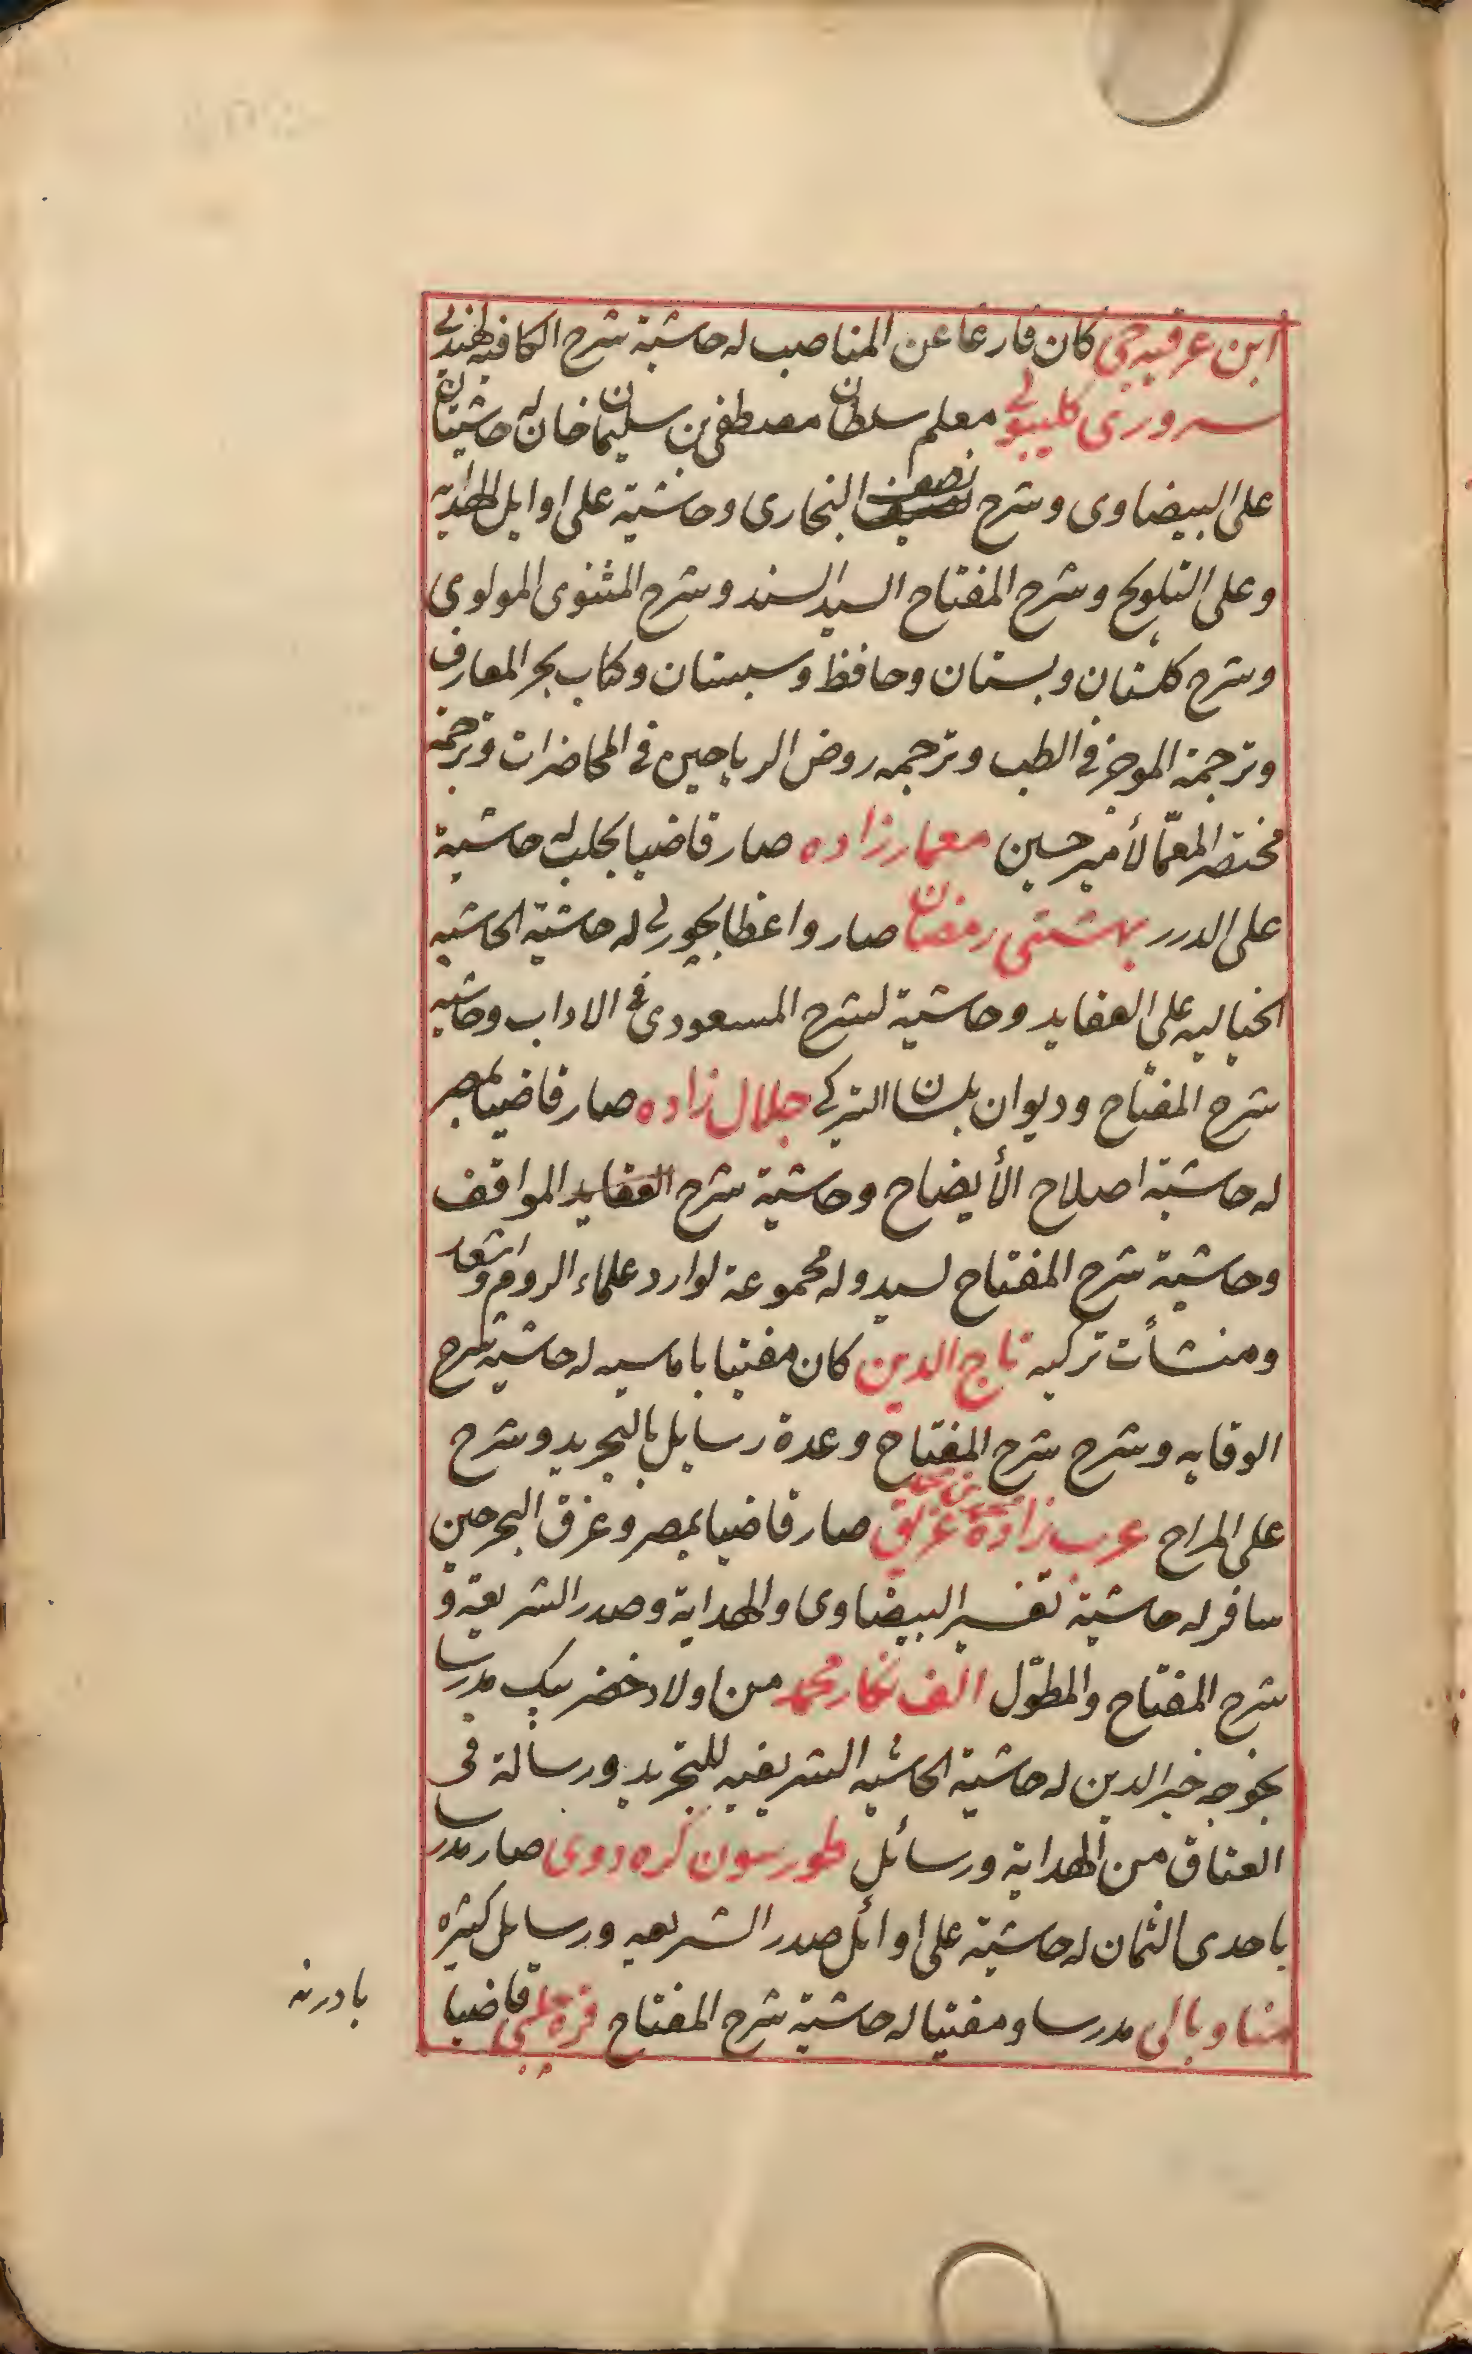 ابن عرقيه جى كان فارغا عن المناصب له حاشية شرح الكافيه لهندى
سرورى كليبولى معلم سلطان مصطفى بن سليمان خان له حاشيتان
على البيضاوى وشرح نصف البخارى وحاشية على اوايل الهدايه
وعلى التلويح وشرح المفتاح السيد السند وشرح المثنوى المولوى
وشرح كلستان وبستان وحافظ وسبستان وكتاب بحر المعارف
وترجمة الموجز فى الطب وترجمه روض الرياحين فى المحاضرات وترجمه
مختصر المعمّا لأمير حسين معمار زاده صار قاضيا بحلب له حاشية
على الدرر بهشتى رمضان صار واعظا بچورلى له حاشية الحاشيه
الخياليه على العقايد وحاشية لشرح المسعودى فى الاداب وحاشيه
شرح المفتاح وديوان بلسان التركى جلال زاده صار قاضيا بمصر
له حاشية اصلاح الأيضاح وحاشية شرح العقايد المواقف
وحاشية شرح المفتاح لسيد وله مجموعة لوارد علماء الروم واشعار
ومنشأت تركيه تاج الدين كان مفتيا باماسيه له حاشية شرح
الوقايه وشرح شرح المفتاح وعدة رسايل بالتجريد وشرح
على المراح عرب زاده محمد بن محمد غريق صار قاضيا بمصر وغرق البحر حين
سافر له حاشية تفسير البيضاوى والهداية وصدر الشريعة و
شرح المفتاح والمطوّل الف نكار محمد من اولاد خضر بيك مدرسا
بخوجه خير الدين له حاشية الحاشيه الشريفيه للتجريد ورسالة فى
العتاق من الهداية ورسائل طورسون كره دوى صار مدرسا
باحدى الثمان له حاشية على اوائل صدر الشريعه ورسايل كثيره
مناو بالى مدرسا ومفتيا له حاشية شرح المفتاح قره چلبى قاضيا
بادرنه